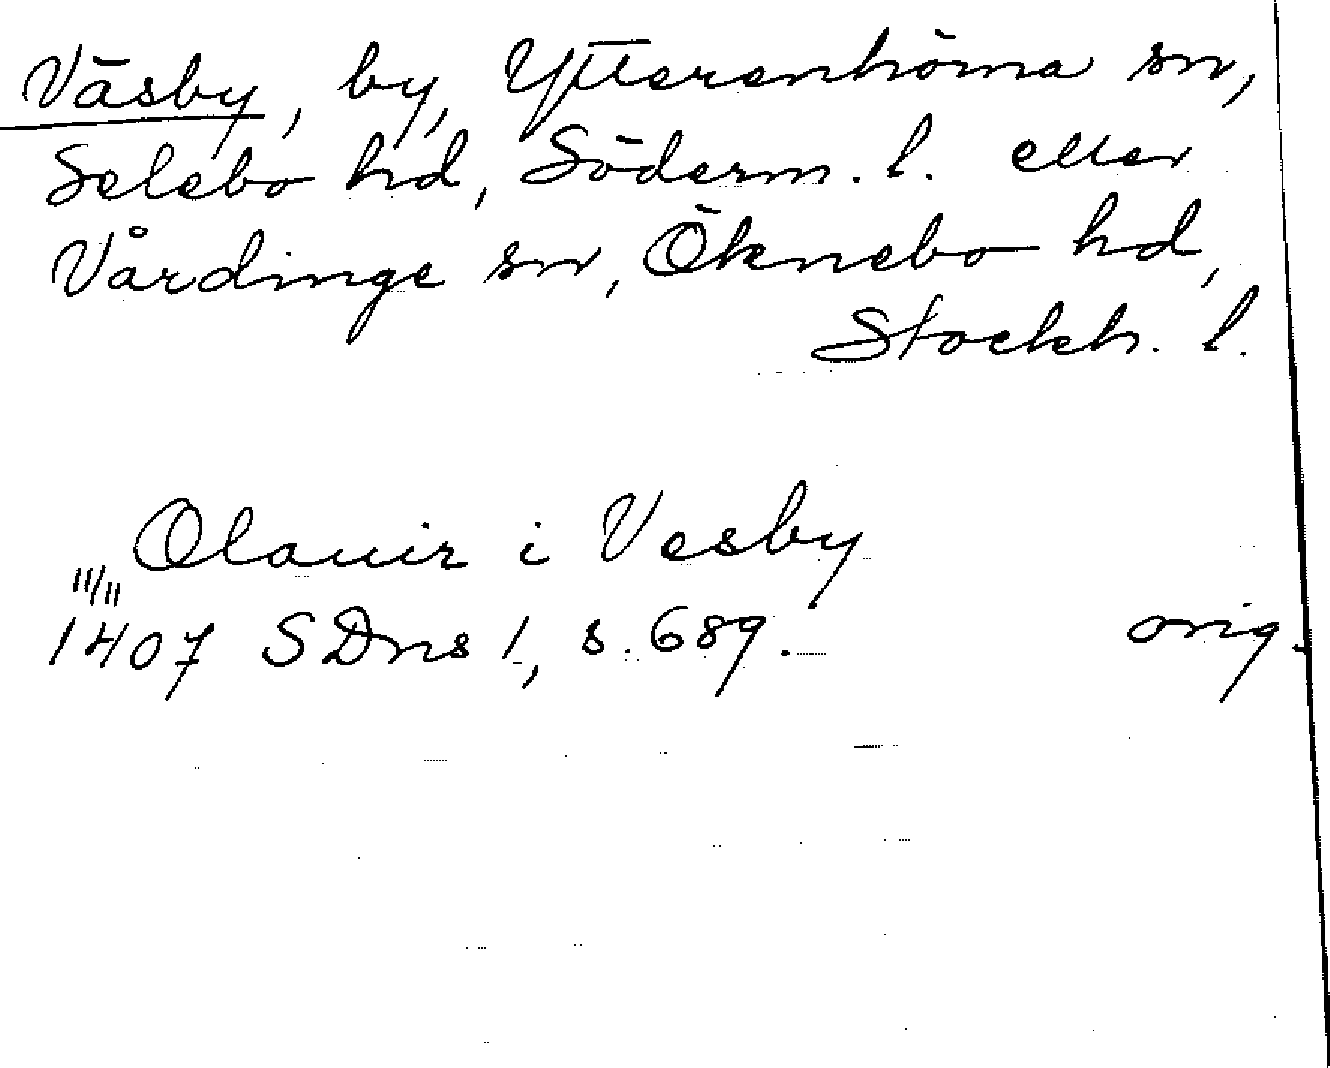 Väsby, by, Ytterenhörna sn,
Selebo hd, Söderm. l. eller
Vårdinge sn, Öknebo hd,
Stockh. l.
Olauir i Vesby
11/11
1407 SDns 1, s. 689. orig.